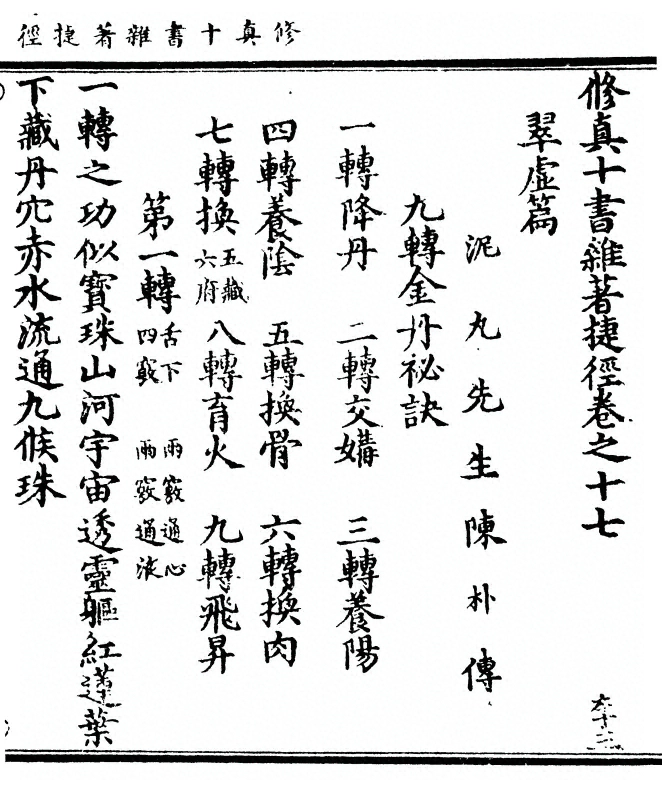 修真十書雜著捷徑
修真十書雜著捷徑卷之十七
翠虛篇
泥丸先生陳朴傳
九轉金丹祕訣
一轉降丹 二轉交媾 三轉養陽
四轉養陰 五轉換骨 六轉換肉
七轉換五藏六府 八轉育火 九轉飛昇
第一轉舌下四竅 兩竅通心兩竅通液
一轉之功似寶珠山河宇宙透靈軀紅蓮葉
下藏丹穴赤水流通九候珠